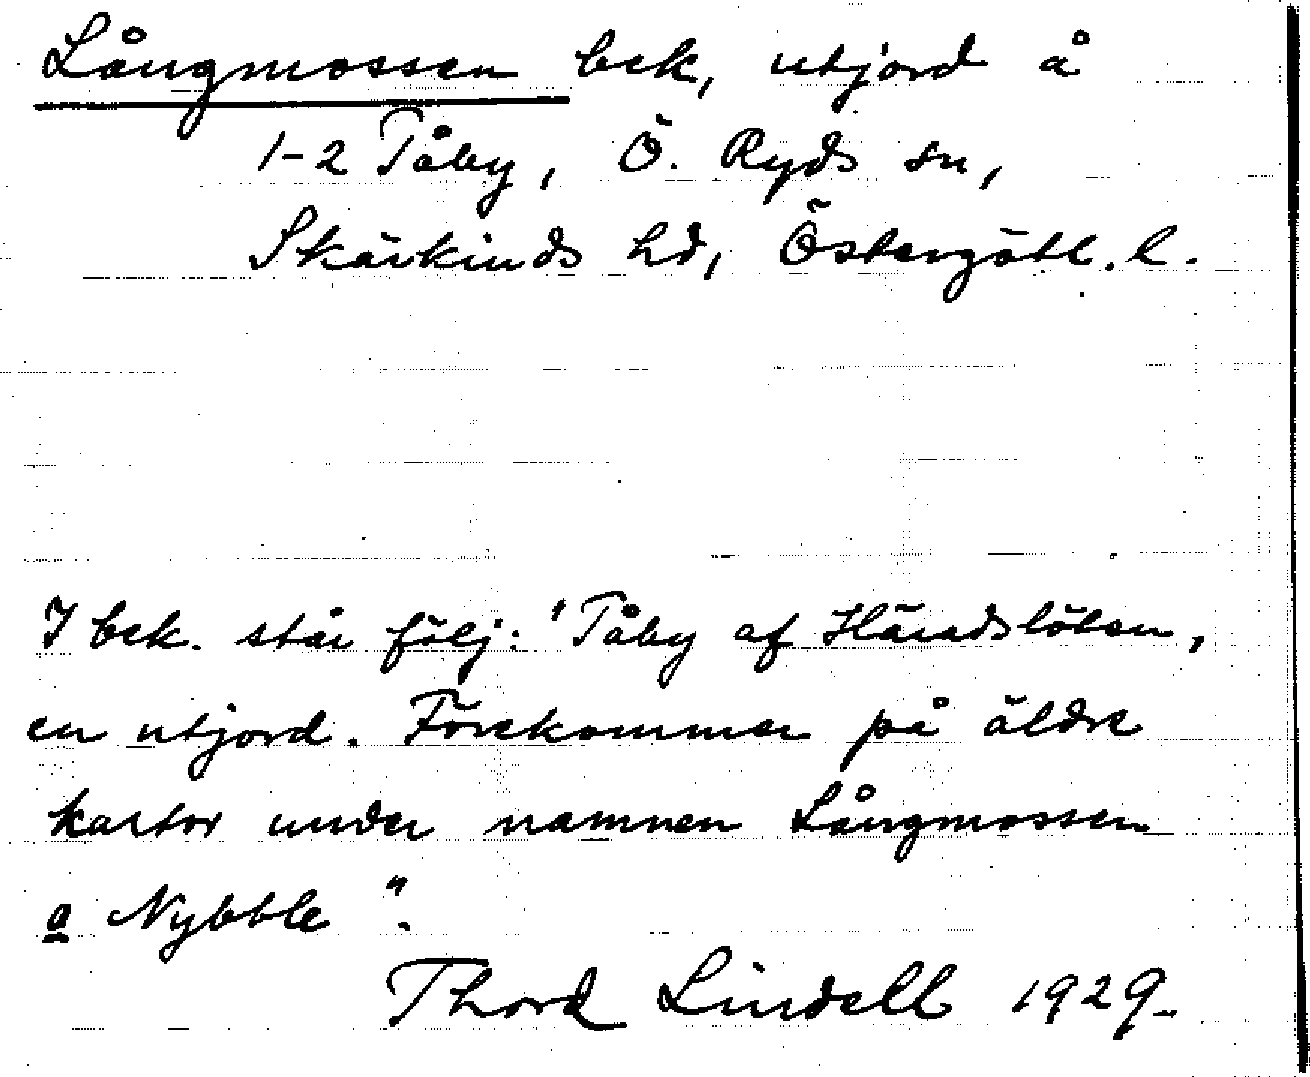 Långmossen bek, utjord å
1-2 Tåby, Ö. Ryds sn,
Skärkinds hd, Östergötl. l.
I bek. står följ: "Tåby af Häradslöten,
en utjord. Förekommer på äldre
kartor under namnen Långmossen
o Nybble".
Thord Lindell 1929.